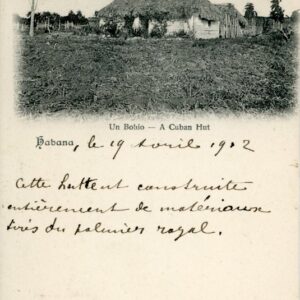 Un Bohio — A Cuban Hut
Habana, le 19 Avril 1902
Cette hutte est construite
entièrement de matériaux
tirés du palmier royal.